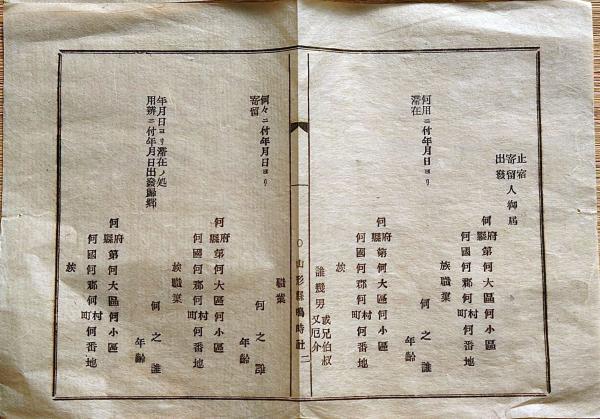 止宿
寄留人御届
出發
何府縣第何大區何小區
何國何郡何村町何番地
族職業
何之誰
年齡
何用ニ付年月日ヨリ
滯在
何府縣第何大區何小區
何國何郡何村町何番地
族
誰幾男 或兄伯叔
又厄介
〇山形縣鳴時社
二
職業
何之誰
年齡
何々ニ付年月日ヨリ
寄留
何府縣第何大區何小區
何國何郡何村町何番地
族職業
何之誰
年齡
年月日ヨリ滯在ノ処
用辨ニ付年月日出發歸郷
何府縣第何大區何小區
何國何郡何村町何番地
族